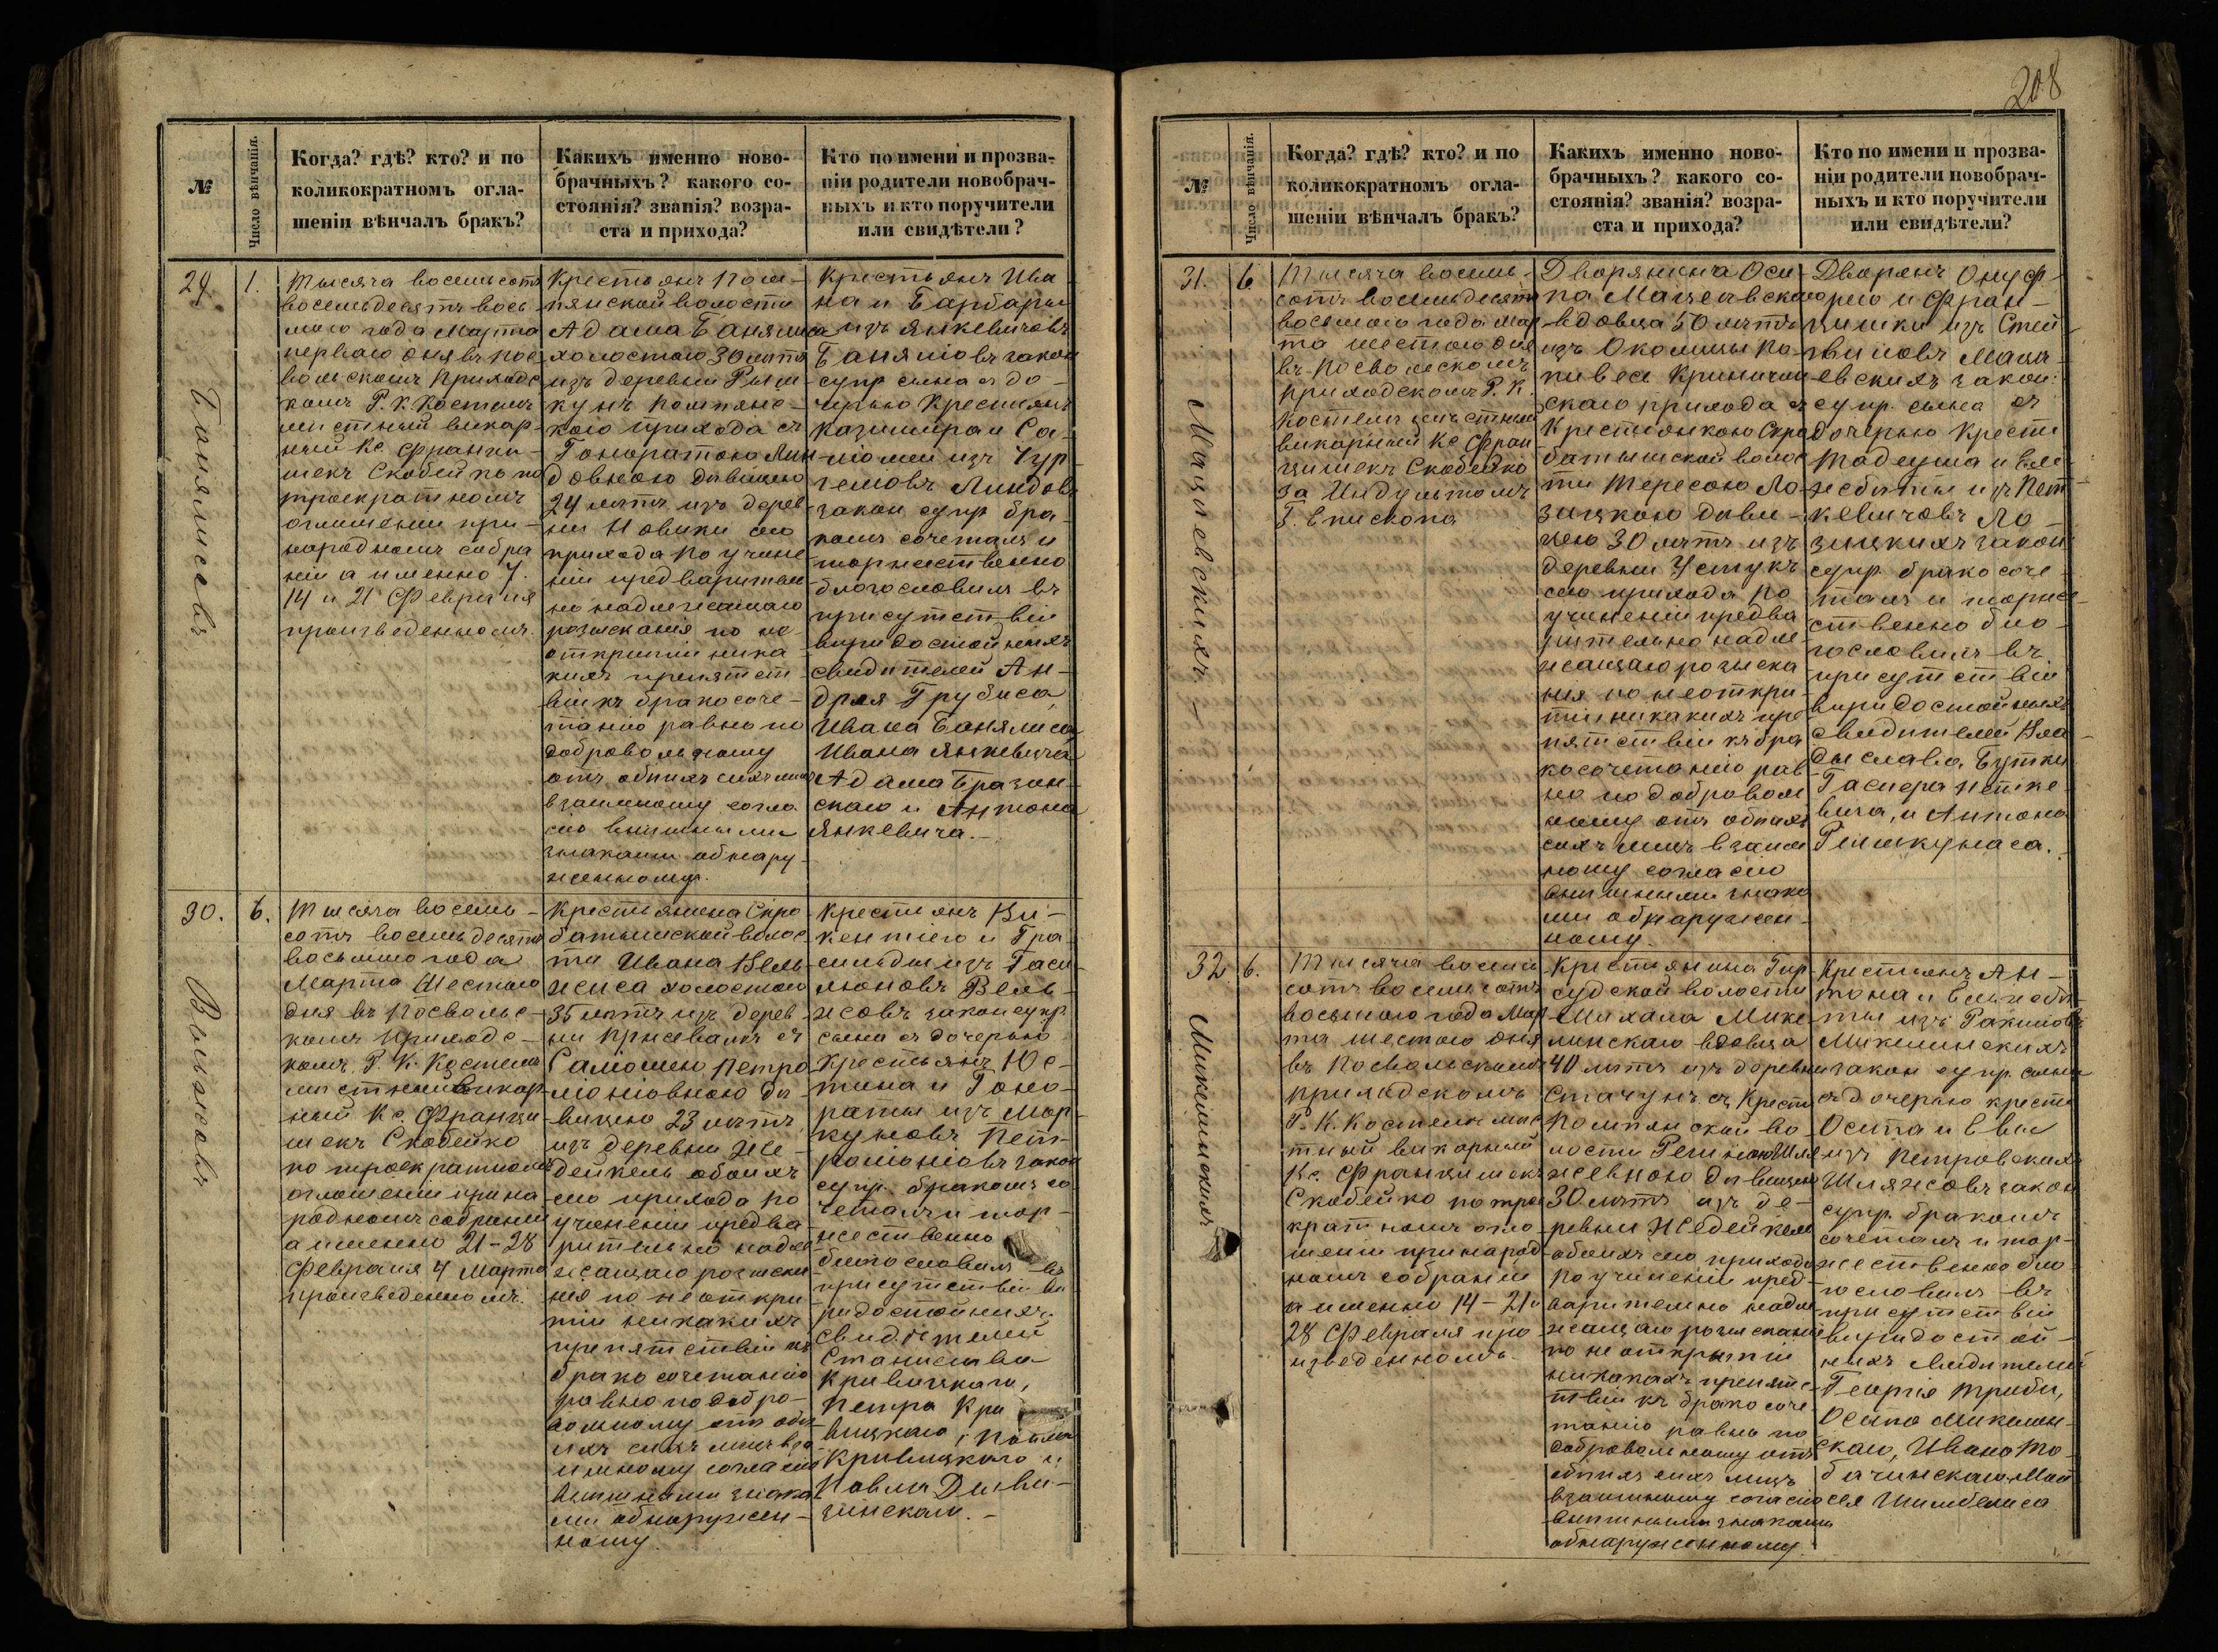 208
№
Число вѣнчанія.
Когда? гдѣ? кто? и по
коликократномъ огла-
шеніи вѣнчалъ бракъ?
Какихъ именно ново-
брачныхъ? какого со-
стоянія? званія? возра-
ста и прихода?
Кто по имени и прозва-
ніи родители новобрач-
ныхъ и кто поручители
или свидѣтели?
29
1.
Тысяча восемьсотъ
восемьдесятъ вось
мого года Марта
перваго дня въ Пос
вольскомъ приходс
комъ Р. К. Костелѣ
мѣстный викар-
ный Кс. Франци-
шекъ Скобейко по
троекратномъ
оглашеніи при
народномъ собра
ніи а именно 7.
14 и 21 Февраля
произведенномъ.
Крестьянъ Пом-
пянской волости
Адама Баняписа
холостого 30 лѣтъ
изъ деревни
кунъ Помпянс-
кого прихода съ
Гоноратою Лин
довною дѣвицею
24 лѣтъ изъ дерев
ни Новики сего
прихода по учине
ніи предварител
но надлежащаго
розысканія по не
открытіи ника
кихъ препятст
вій къ бракосоче-
танію равно по
добровольному
отъ обоихъ сихъ лицъ
взаимному согла
сію внѣшними
знаками обнару-
женному.
Крестьянъ Ива
на и Барбары
изъ Янкевичовъ
закон
супр сына съ до-
черью Крестьянъ
Казимира и Са-
ломеи изъ
Линдовъ
закон супр бра-
комъ сочеталъ и
торжественно
благословилъ въ
присутствіи
вѣридостойныхъ
свидѣтелей Ан-
дрея Грубиса,
Ивана
Ивана Янкевича
Адама
скаго и Антона
Янкевича.-
30.
6.
Тысяча восемь-
сотъ восемьдесятъ
восьмого года
Марта Шестого
дня въ Посвольс-
комъ приходс-
комъ Р. К. Костелѣ
мѣстный викар-
ный Кс. Францы
шекъ Скобейко
по троекратномъ
оглашеніи при на
родномъ собраніи
а именно 21-28
Февраля 4 Марта
произведенномъ.
Крестьянина Скро
батышской волос
ти Ивана Вель
жиса холостого
35 лѣтъ изъ дерев
ни съ
Саломею Петро
ніовною дѣ-
вицею 23 лѣтъ
изъ деревни Же-
дейкель обоихъ
сего прихода по
учиненіи предва-
рительно надле
жащаго розыска
нія по не откры
тіи никакихъ
препятствій къ
бракосочетанію
равно по добро-
вольному отъ обо
ихъ сихъ лицъ вза
имному согласію
внѣшними знака
ми обнаружен-
ному.
Крестьянъ Ви-
кентіего и Гра-
сильды изъ
Вель-
жсовъ закон супр
сына съ дочерью
Крестьянъ Юс-
тина и Гоно-
раты изъ Мор-
куновъ Пет-
роніовъ закон
супр. бракомъ со
четалъ и тор-
жественно
благословилъ въ
присутствіи вѣ
ридостойныхъ
свидѣтелей
Станислава
Кривицкаго,
Петра Кри
вицкаго,
Кривицкого и
Павла
31.
6
Тысяча восемь-
сотъ восемьдесятъ
восьмого года Мар
та шестого дня
въ Посвольскомъ
приходскомъ Р. К.
Костелѣ мѣстный
викарный Кс Фран
цишекъ Скобейко
за Индультомъ
Г. Епископа
Мацевскихъ
Дворянина Оси
па Мацевскаго
вдовца 50 лѣтъ
изъ Околицы По
скаго прихода съ
Крестьянкою Скро
батышской волос
ти Тересою Ло-
зицкою дѣви-
цею 30 лѣтъ изъ
деревни Устукъ
сего прихода по
учиненіи предва
рительно надле
жащаго розыска
нія по неоткры-
тіи никакихъ пре
пятствій къ бра
косочетанію рав
но по доброволь
ному отъ обоихъ
сихъ лицъ взаим
ному согласію
внѣшними знака
ми обнаружен-
ному.
Дворянъ Онуф-
рего и Фран-
цишки изъ
Маца-
евскихъ закон:
супр. сына съ
дочерью Кресть
Тадеуша и Ели-
жебеты изъ Пет-
кевичовъ Ло-
зицкихъ закон
супр. бракосоче-
талъ и торже-
ственно бла-
гословилъ въ
присутствіи
вѣридостойныхъ
свидѣтелей Вла
дыслава Бутке
Гаспера
вича, и Антона
32.
6.
Тысяча восемь
сотъ восемьсотъ
восьмого года Мар
та шестого дня
въ Посвольскомъ
приходскомъ
Р. К. Костелѣ мѣс
тный викарный
Кс. Францишекъ
Скобейко по трое
кратномъ огла
шеніи при народ
номъ собраніи
а именно 14-21 и
28 Февраля про
изведенномъ.
Крестьянина Гир
судской волости
Михала Мике
линскаго вдовца
40 лѣтъ изъ деревни
Стачунъ съ Кресть
Помпянской во-
лости
дѣвицею
30 лѣтъ изъ де-
ревни Жедейкели
обоихъ сего прихода
по учиненіи пред-
варительно надле
жащаго розыскані
по не открытіи
никакихъ препятс
твій къ бракосоче
танію равно по
добровольному отъ
обоихъ сихъ лицъ
взаимному согласію
внѣшними знаками
обнаруженному
Крестьянъ Ан-
тона и Ельжбе-
ты изъ
Микелинскихъ
закон супр. сына
съ дочерью кресть
Осипа и Евы
изъ Петровскихъ
закон
супр. бракомъ
сочеталъ и тор-
жественно бла-
гословилъ въ
присутствіи
вѣридостой-
ныхъ свидѣтелей
Георгія
Осипа Микелин-
скаго, Ивана